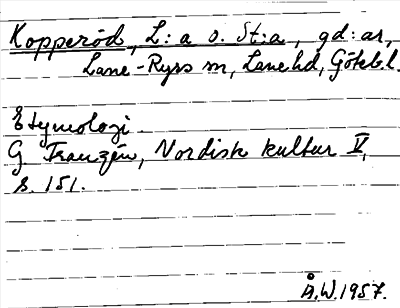 Kopperöd, L:a o. St:a, gd:ar,
Lane-Ryrs sn, Lane hd, Götebl.
Etymologi.
G Franzén, Nordisk kultur V,
s. 151.
Å.W.1957.